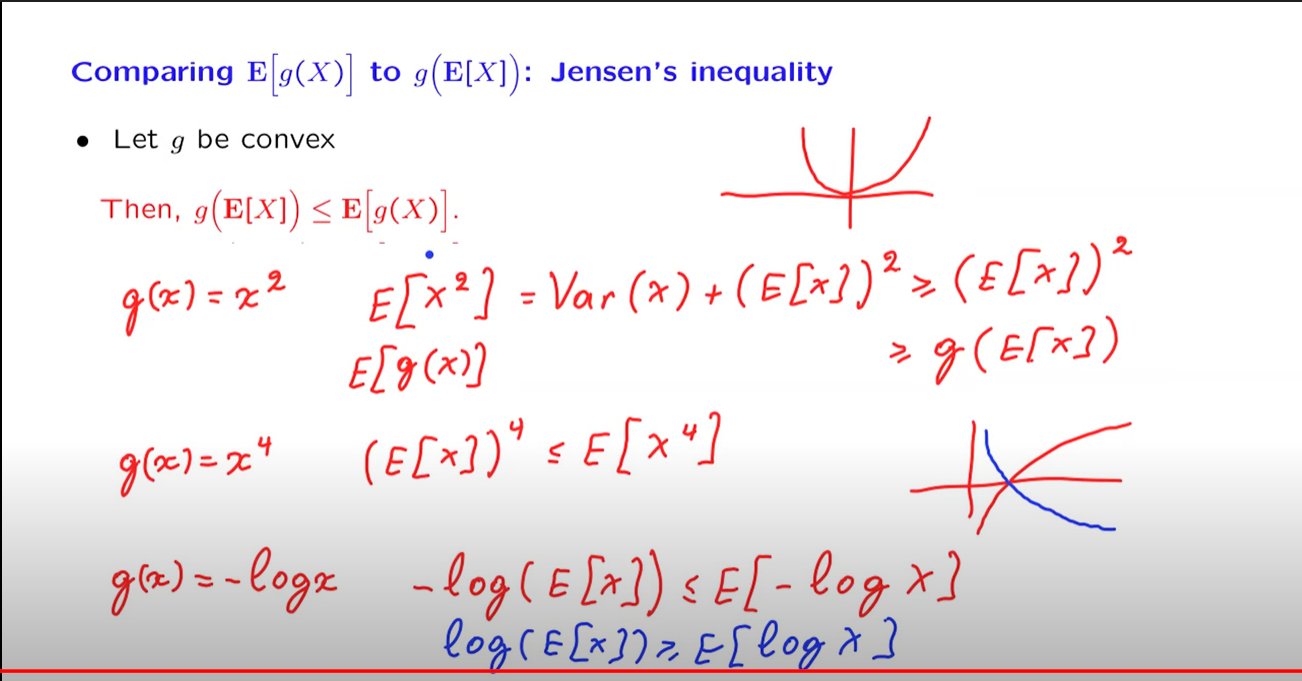 Comparing E[g(X)] to g(E[X]): Jensen's inequality
• Let g be convex
Then, g(E[X]) ≤ E[g(X)].
g(x) = x² E[X²] = Var(X) + (E[X])² ≥ (E[X])²
E[g(X)] ≥ g(E[X])
g(x) = x⁴ (E[X])⁴ ≤ E[X⁴]
g(x) = -log x -log(E[X]) ≤ E[-log X]
log(E[X]) ≥ E[log X]